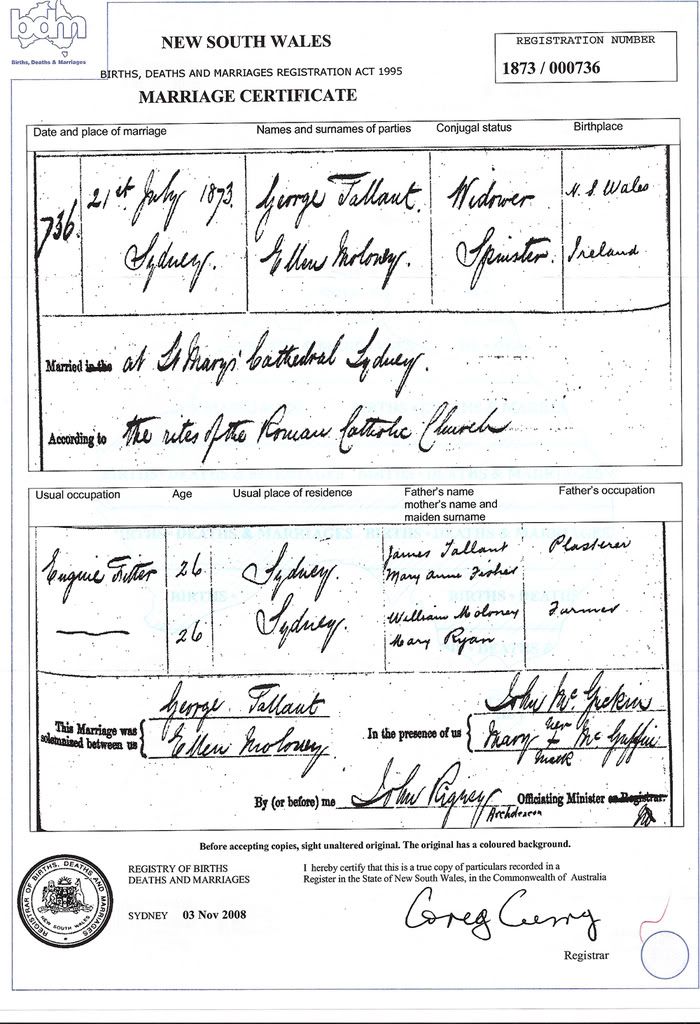 bdm
Births, Deaths & Marriages
NEW SOUTH WALES
BIRTHS, DEATHS AND MARRIAGES REGISTRATION ACT 1995
MARRIAGE CERTIFICATE
REGISTRATION NUMBER
1873 / 000736
Date and place of marriage Names and surnames of parties Conjugal status Birthplace
736 21st July 1873. George Tallant. Widower N. S. Wales
Sydney. Ellen Moloney. Spinster. Ireland
Married in the at St Marys' Cathedral Sydney.
According to the rites of the Roman Catholic Church
Usual occupation Age Usual place of residence Father's name mother's name and maiden surname Father's occupation
Engine Fitter 26 Sydney. James Tallant Plasterer
Mary Anne Fisher
26 Sydney. William Moloney Farmer
Mary Ryan
This Marriage was solemnized between us George Tallant
Ellen Moloney
In the presence of us John
Mary her + mark Mc Guffin
By (or before) me John Rigney Officiating Minister or Registrar.
Archdeacon
Before accepting copies, sight unaltered original. The original has a coloured background.
REGISTRAR OF BIRTHS, DEATHS AND MARRIAGES
NEW SOUTH WALES
REGISTRY OF BIRTHS
DEATHS AND MARRIAGES
SYDNEY 03 Nov 2008
I hereby certify that this is a true copy of particulars recorded in a
Register in the State of New South Wales, in the Commonwealth of Australia
Greg Curry
Registrar